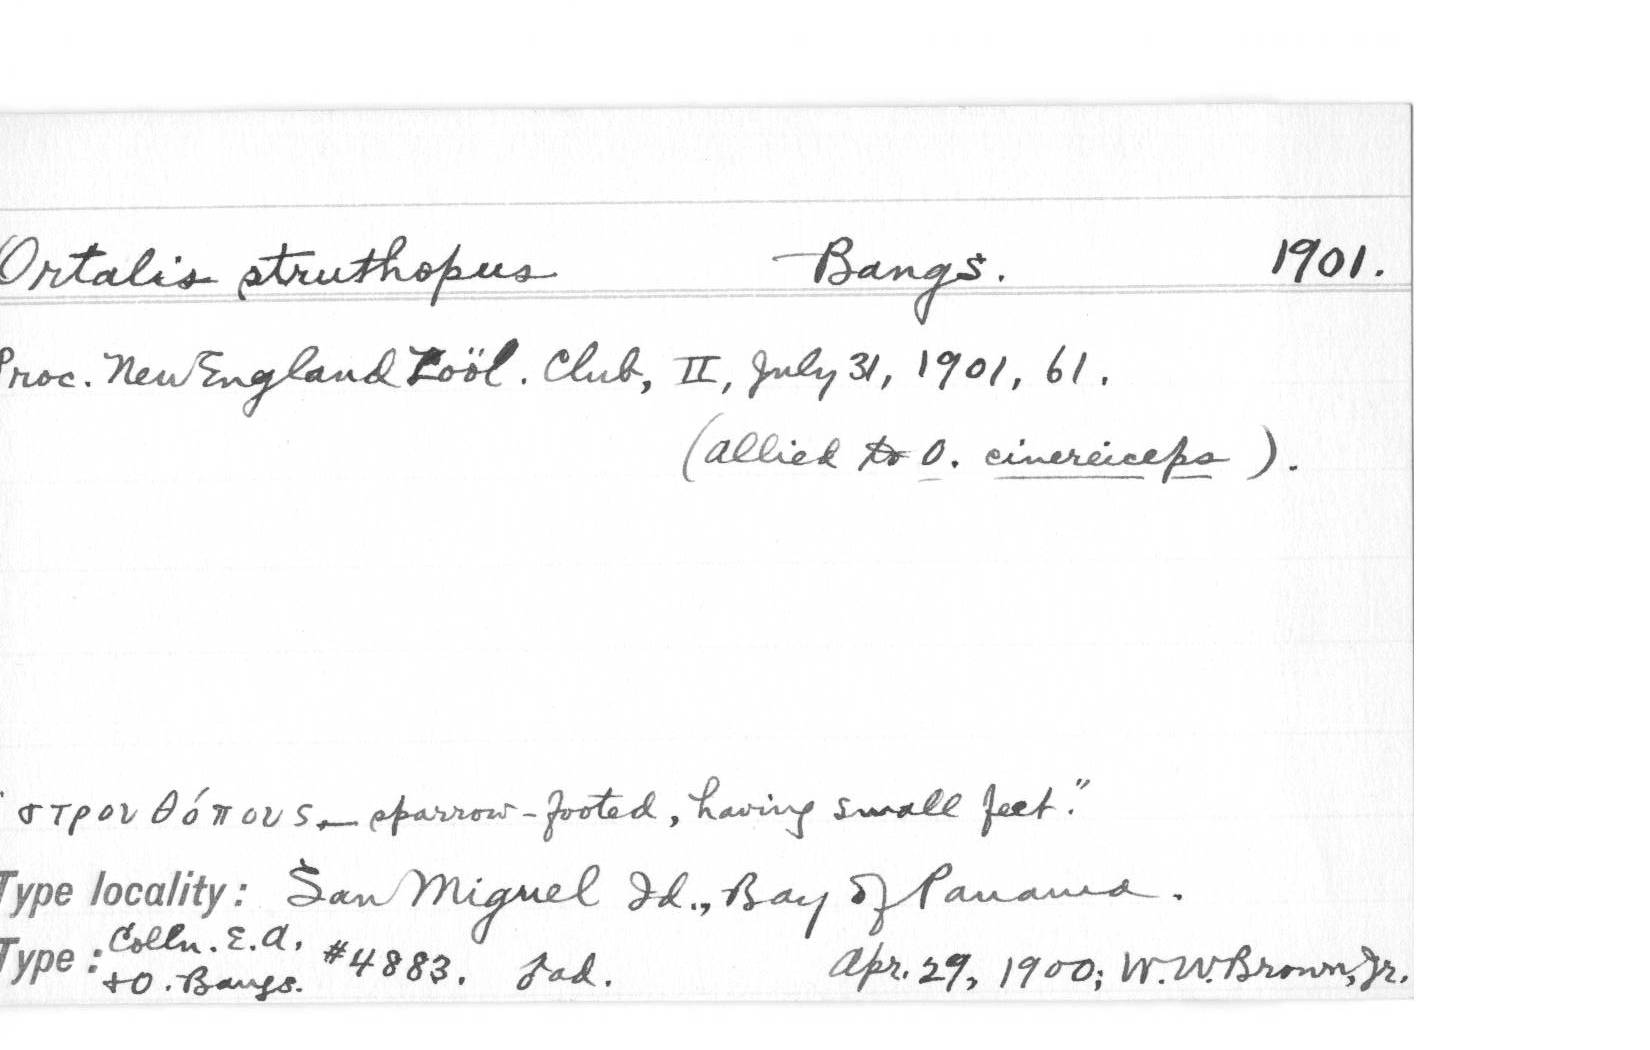 Ortalis struthopus Bangs. 1901.
Proc. New England Zoöl. Club, II, July 31, 1901, 61.
(allied to O. cinereiceps).
"στρουθόπους — sparrow-footed, having small feet."
Type locality: San Miguel Id., Bay of Panama.
Type: Colln. E.A. + O. Bangs. #4883. ad. Apr. 29, 1900; W.W. Brown, Jr.